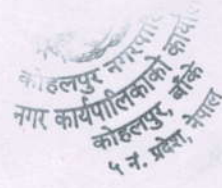 कोहलपुर नगरपालि
नगर कार्यपालिकाको कार्याल
कोहलपुर, बाँके
५ नं. प्रदेश, नेपाल